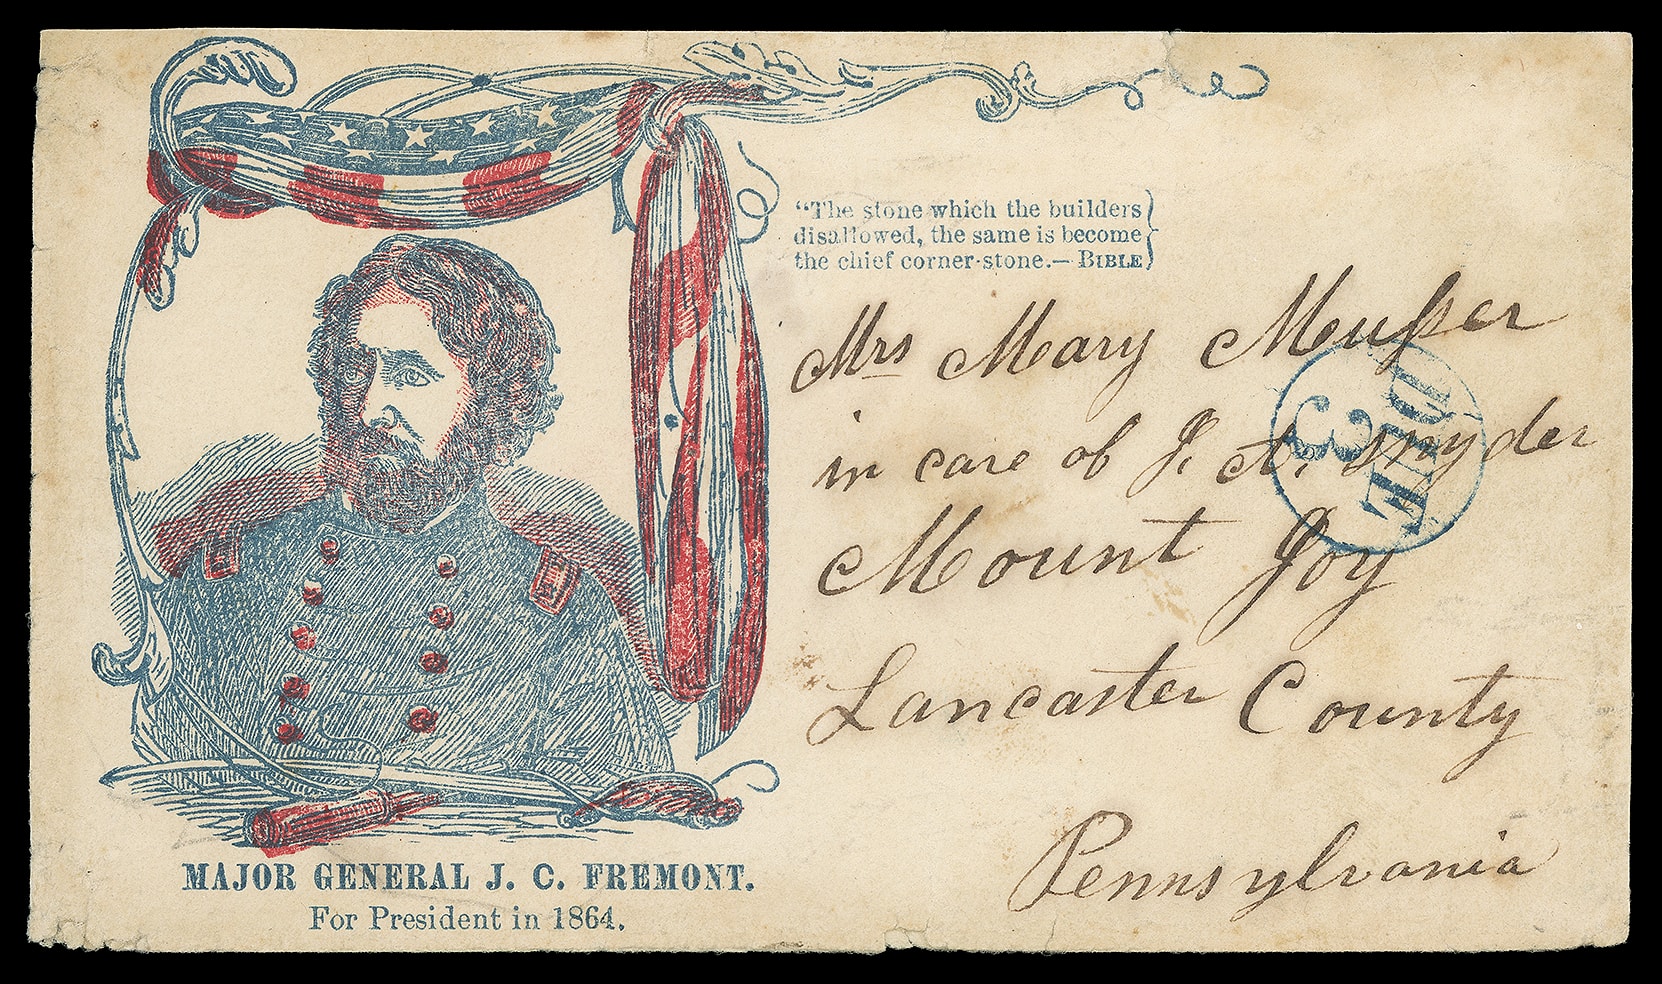 “The stone which the builders
disallowed, the same is become
the chief corner-stone.— BIBLE
Mrs Mary Musser
in care of J. A. Snyder
Mount Joy
Lancaster County
Pennsylvania
DUE
3
MAJOR GENERAL J. C. FREMONT.
For President in 1864.